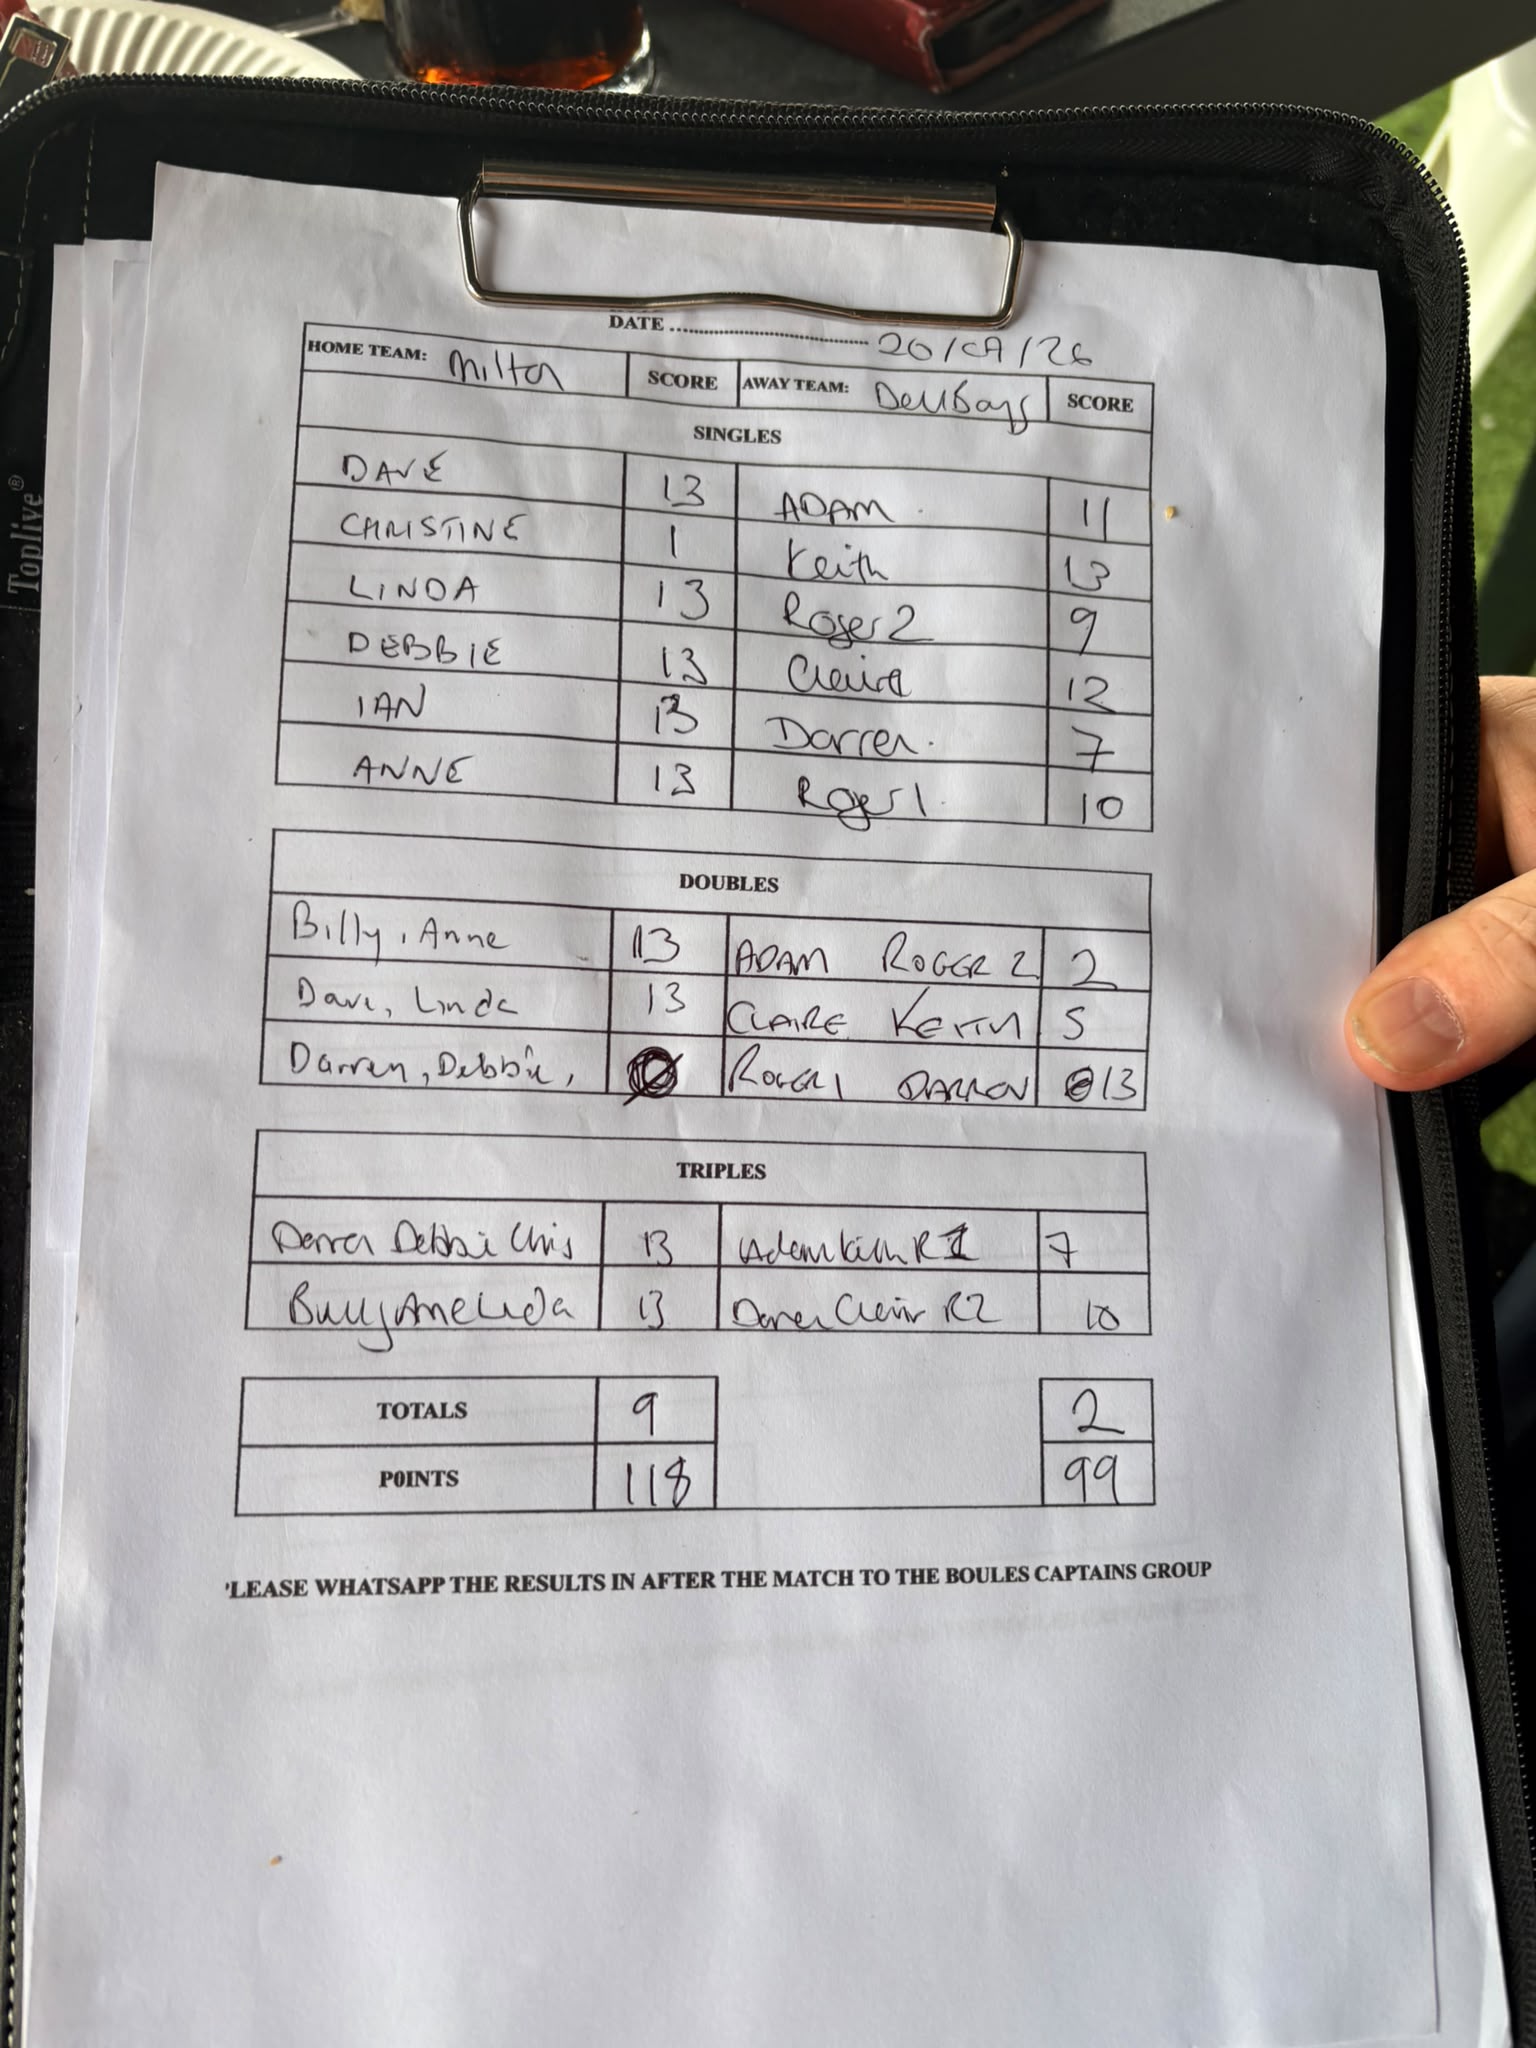 Toplive®
DATE ........................ 20/09/26
HOME TEAM: Milton SCORE AWAY TEAM: Dellboys SCORE
SINGLES
DAVE 13 ADAM 11
CHRISTINE 1 Keith 13
LINDA 13 Roger 2 9
DEBBIE 13 Claire 12
IAN 13 Darren 7
ANNE 13 Roger 1 10
DOUBLES
Billy, Anne 13 ADAM ROGER 2 2
Dave, Linda 13 CLAIRE KEITH 5
Darren, Debbie, ROGER 1 DARREN 13
TRIPLES
Darren Debbie Chris 13 Adam Keith R1 7
Billy Anne Linda 13 Darren Claire R2 10
TOTALS 9 2
POINTS 118 99
LEASE WHATSAPP THE RESULTS IN AFTER THE MATCH TO THE BOULES CAPTAINS GROUP